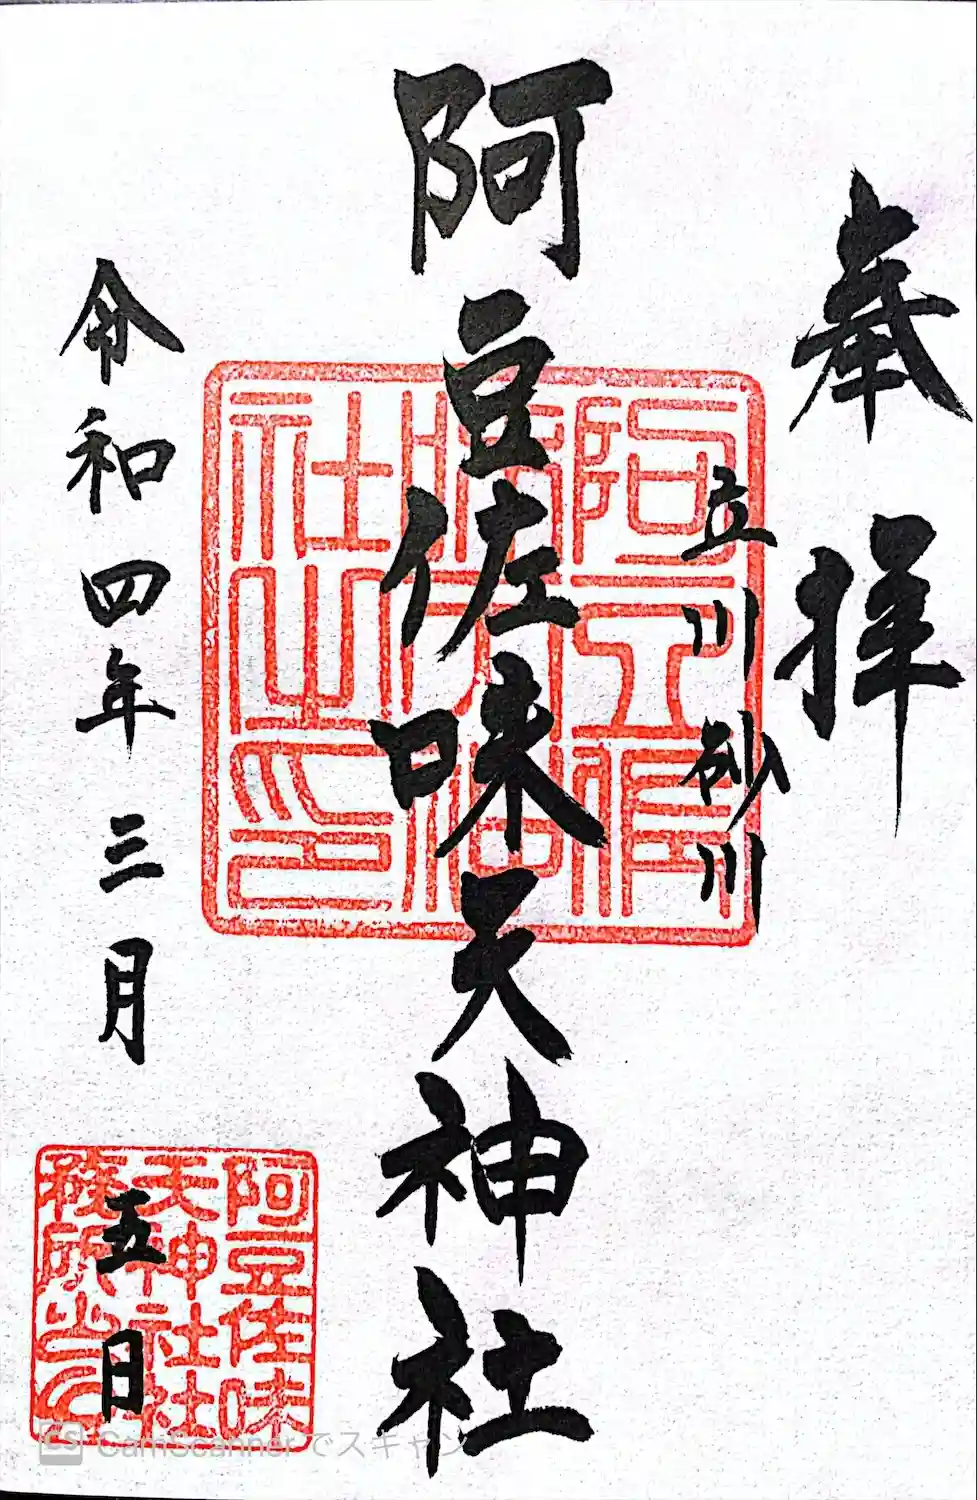 奉拝
立川砂川
阿豆佐味天神社
令和四年三月五日
阿豆佐味
天神社社
務所之印
CS CamScannerでスキャン